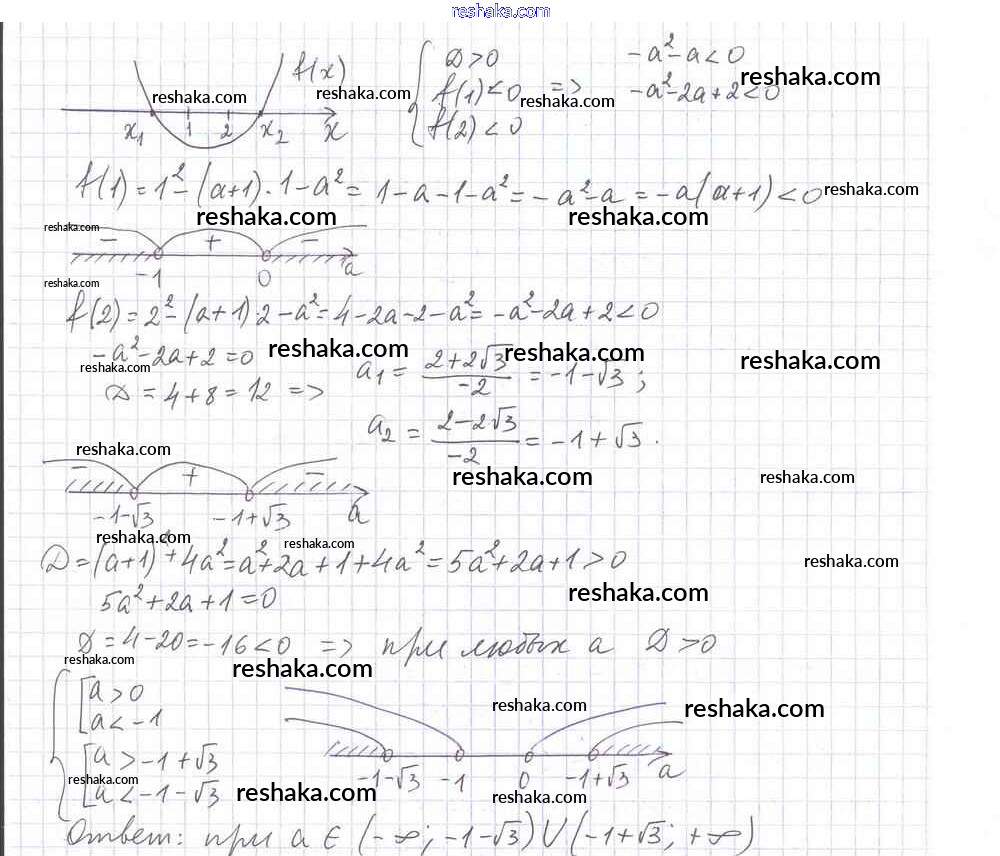 reshaka.com
f(x)
reshaka.com reshaka.com reshaka.com reshaka.com
x₁ 1 2 x₂ x
{ D>0
f(1)<0 => -a²-a<0
f(2)<0 -a²-2a+2<0
f(1)=1²-(a+1)·1-a²= 1-a-1-a²=-a²-a=-a(a+1)<0 reshaka.com
reshaka.com reshaka.com reshaka.com
- + -
-1 0 a
reshaka.com
f(2)=2²-(a+1)·2-a²=4-2a-2-a²=-a²-2a+2<0
-a²-2a+2=0 reshaka.com a₁= (2+2√3)/(-2) = -1-√3; reshaka.com reshaka.com
reshaka.com
D=4+8=12 =>
a₂ = (2-2√3)/(-2) = -1+√3.
reshaka.com reshaka.com reshaka.com
- + -
-1-√3 -1+√3 a
reshaka.com reshaka.com reshaka.com
D=(a+1)²+4a²=a²+2a+1+4a²=5a²+2a+1>0
5a²+2a+1=0 reshaka.com
D=4-20=-16<0 => при любых a D>0
reshaka.com reshaka.com
{ [ a>0
a<-1
[ a>-1+√3
a<-1-√3
reshaka.com reshaka.com
-1-√3 -1 0 -1+√3 a
reshaka.com reshaka.com reshaka.com
Ответ: при a ∈ (-∞; -1-√3) ∪ (-1+√3; +∞)